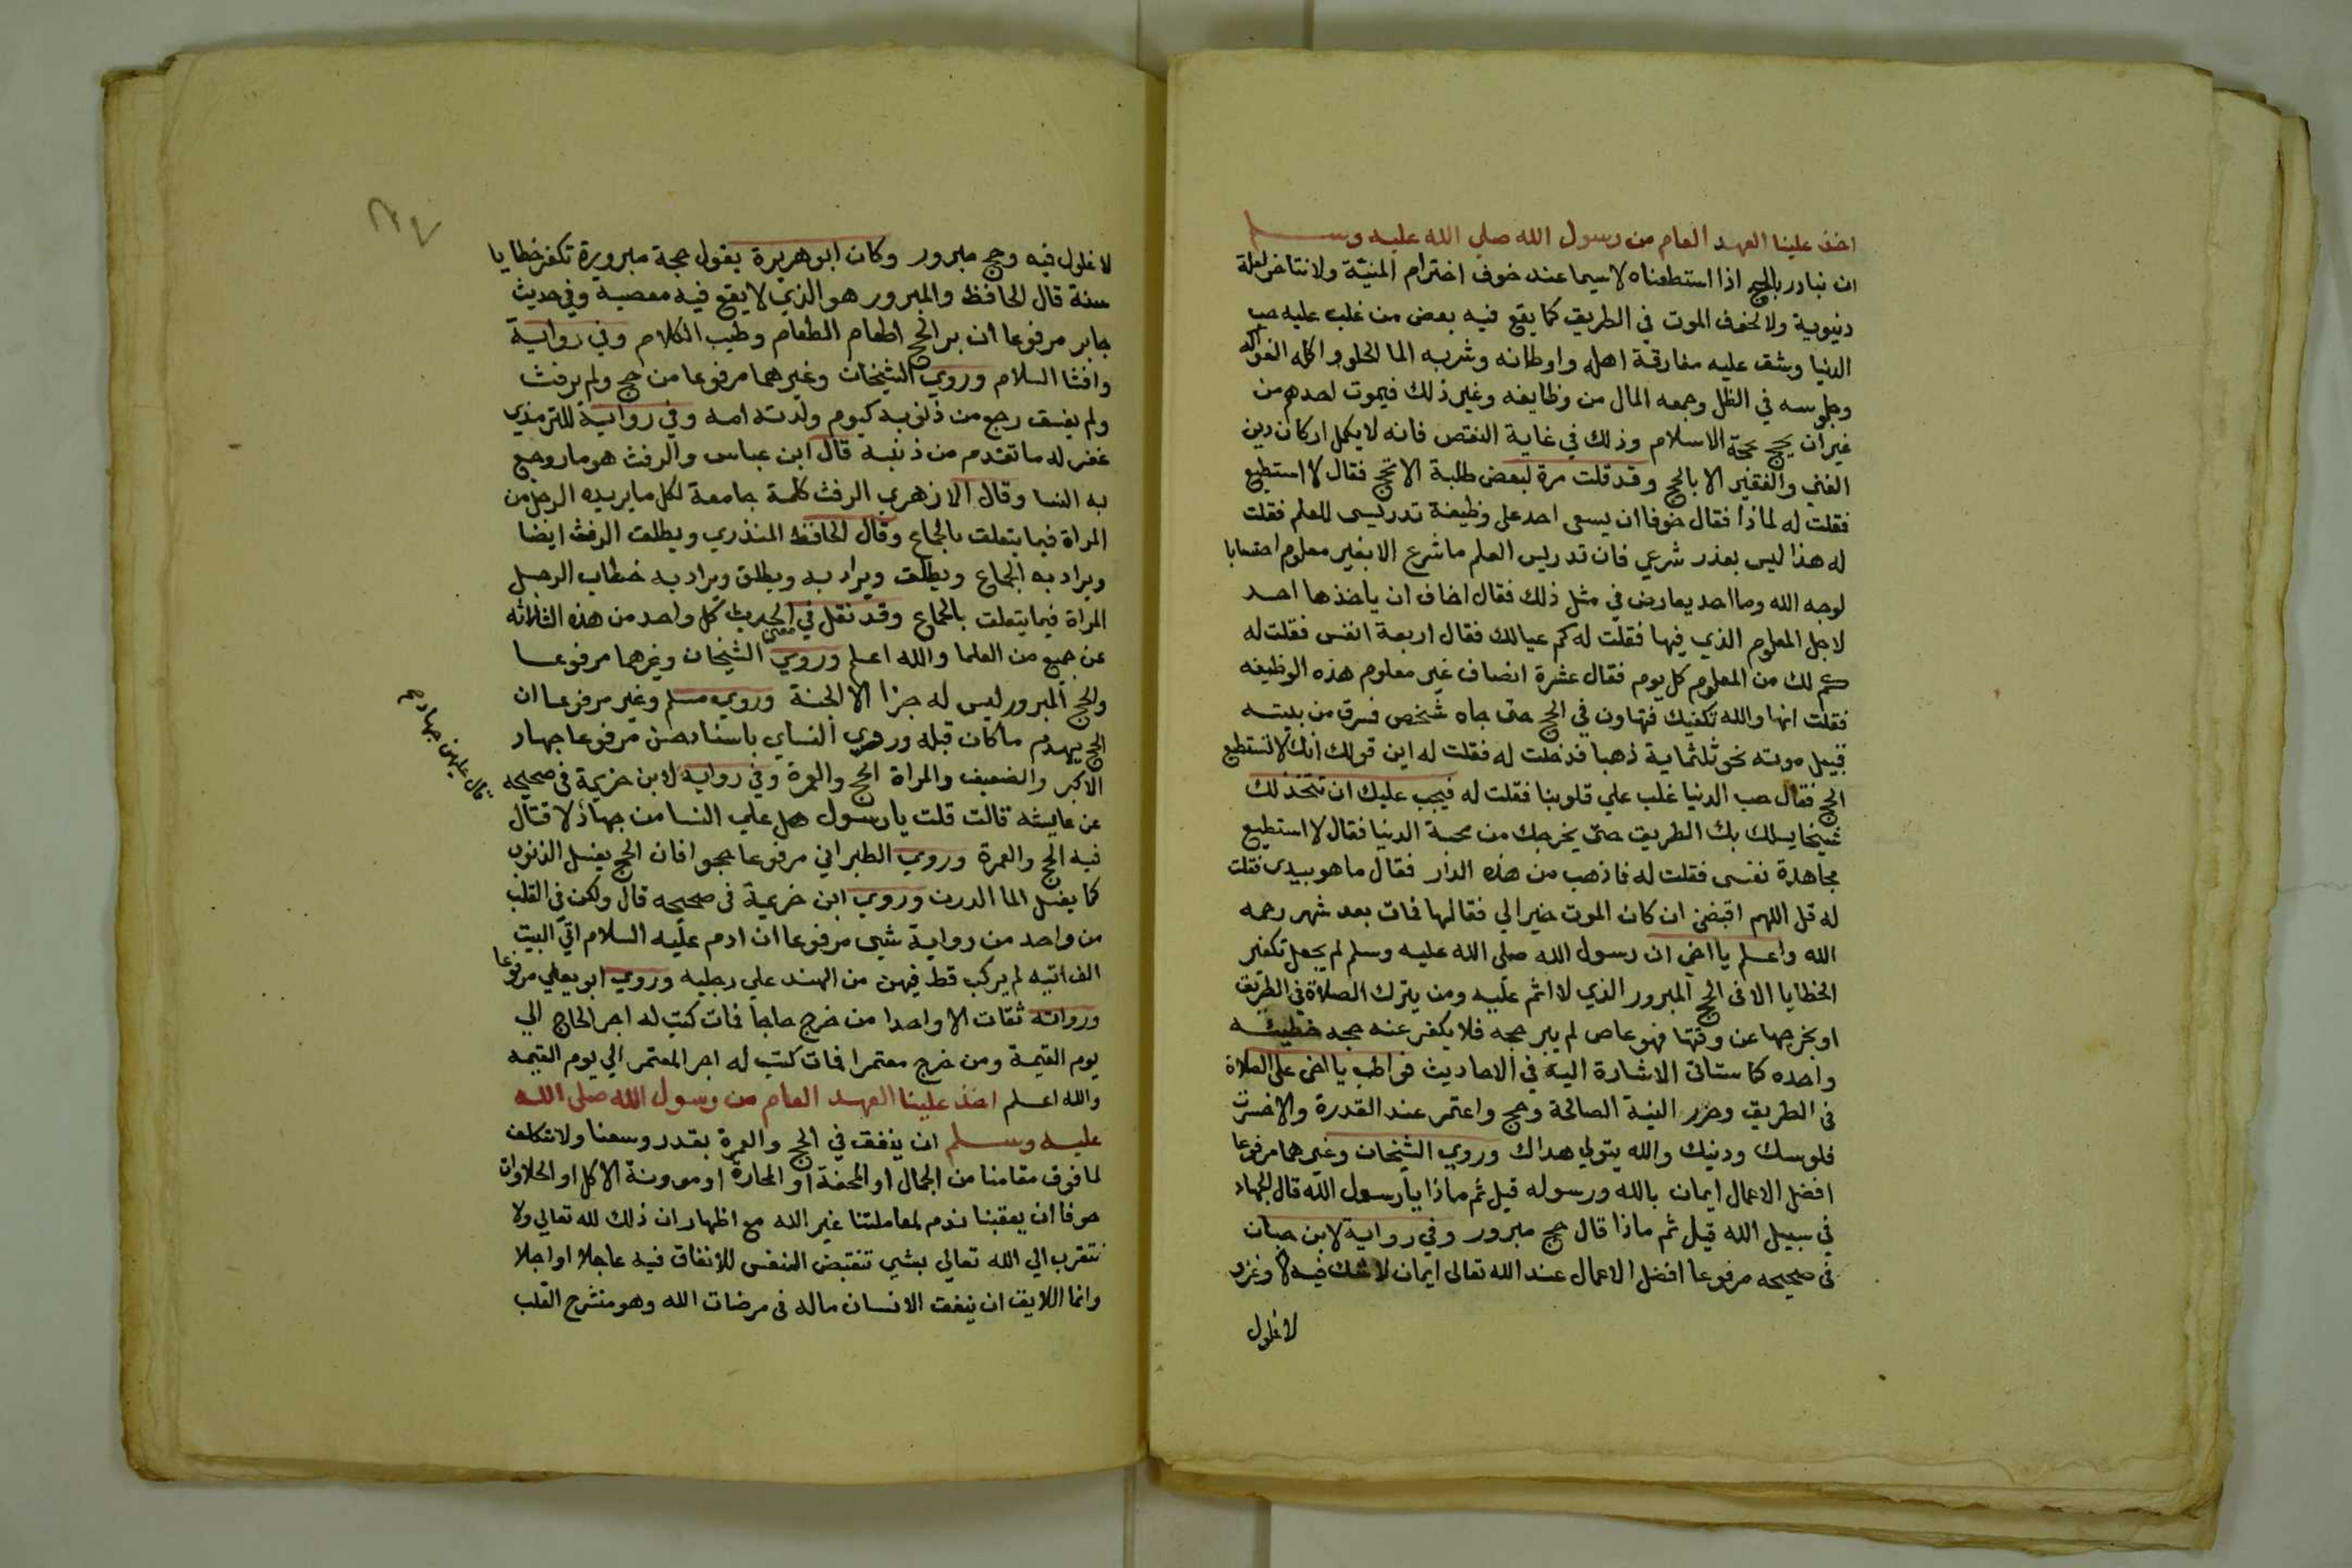 اخذ علينا العهد العام من رسول الله صلي الله عليه وسلم
ان نبادر بالحج اذا استطعناه لاسيما عند خوف اخترام المنيّة ولانتاخر لعلة
دنيوية ولا لخوف الموت في الطريق كما يقع فيه بعض من غلب عليه حب
الدنيا وشق عليه مفارقة اهله واوطانه وشربه الما الحلو واكله الفواكه
وجلوسه في الظل وجمعه المال من وظايفه وغير ذلك فيموت احدهم من
غير ان يحج حجة الاسلام وذلك في غاية النقص فانه لا يكمل اركان دين
الغني والفقير الا بالحج وقد قلت مرة لبعض طلبة الا تحج فقال لا استطيع
فقلت له لماذا فقال خوفا ان يسعى احد على وظيفة تدريسى للعلم فقلت
له هذا ليس بعذر شرعي فان تدريس العلم ما شرع الا بغير معلوم احتسابا
لوجه الله وما احد يعارض في مثل ذلك فقال اخاف ان ياخذها احد
لاجل المعلوم الذي فيها فقلت له كم عيالك فقال اربعة انفس فقلت له
كم لك من المعلوم كل يوم فقال عشرة انصاف غير معلوم هذه الوظيفه
فقلت انها والله تكفيك فتهاون في الحج حتى جاه شخص فسرق من بيته
قبيل موته نحو ثلثماية ذهبا فدخلت له فقلت له اين قولك انك لا تستطيع
الحج فقال حب الدنيا غلب علي قلوبنا فقلت له فيجب عليك ان تتخذ لك
شيخا يسلك بك الطريق حتى يخرجك من محبة الدنيا فقال لا استطيع
مجاهدة نفسى فقلت له فاذهب من هذه الدار فقال ما هو بيدى فقلت
له قل اللهم اقبضني ان كان الموت خيرا لي فقالها فمات بعد شهر رحمه
الله واعلم يا اخي ان رسول الله صلى الله عليه وسلم لم يجعل تكفير
الخطايا الا فى الحج المبرور الذي لا اثم عليه ومن يترك الصلاة في الطريق
او يخرجها عن وقتها فهو عاص لم يبر حجه فلا يكفر عنه حجه خطيئه
واحده كما ستاتى الاشارة اليه في الاحاديث فواظب يا اخى على الصلاة
فى الطريق وحرر النية الصالحة وحج واعتمر عند القدرة والا خسرت
فلوسك ودينك والله يتولي هداك وروي الشيخان وغيرهما مرفوعا
افضل الاعمال ايمان بالله ورسوله قيل ثم ماذا يا رسول الله قال الجهاد
في سبيل الله قيل ثم ماذا قال حج مبرور وفي رواية لابن حبان
فى صحيحه مرفوعا افضل الاعمال عند الله تعالى ايمان لا شك فيه وغزو
لا غلول
لا غلول فيه وحج مبرور وكان ابو هريرة يقول حجة مبرورة تكفر خطايا
سنة قال الحافظ والمبرور هو الذي لا يقع فيه معصية وفي حديث
جابر مرفوعا ان بر الحج اطعام الطعام وطيب الكلام وفي رواية
وافشا السلام وروي الشيخان وغيرهما مرفوعا من حج ولم يرفث
ولم يفسق رجع من ذنوبه كيوم ولدته امه وفي رواية للترمذي
غفر له ما تقدم من ذنبه قال ابن عباس والرفث هو ما روجع
به النسا وقال الازهري الرفث كلمة جامعة لكل ما يريده الرجل من
المراة فيما يتعلق بالجماع وقال الحافظ المنذري ويطلق الرفث ايضا
ويراد به الجماع ويطلق ويراد به ويطلق ويراد به خطاب الرجل
المراة فيما يتعلق بالجماع وقد نقل في معنى الحديث كل واحد من هذه الثلاثه
عن جميع من العلما والله اعلم وروي الشيخان وغيرهما مرفوعا
والحج المبرور ليس له جزا الا الجنة وروي مسلم وغير مرفوعا ان
الحج يهدم ما كان قبله وروي النساي باسناد حسن مرفوعا جهاد
الاكبر والضعيف والمراة الحج والعمرة وفي رواية لابن خزيمة فى صحيحه
عن عايشه قالت قلت يا رسول هل علي النسا من جهاد لا قتال
قال عليهن جهاد
فيه الحج والعمرة وروي الطبراني مرفوعا حجوا فان الحج يغسل الذنوب
كما يغسل الما الدرن وروي ابن خزيمة فى صحيحه قال ولكن في القلب
من واحد من رواية شى مرفوعا ان ادم عليه السلام اتي البيت
الف اتيه لم يركب قط فيهن من الهند علي رجليه وروي ابو يعلي مرفوعا
ورواته ثقات الا واحدا من خرج حاجا فمات كتب له اجر الحاج الي
يوم القيمة ومن خرج معتمرا فمات كتب له اجر المعتمر الي يوم القيمه
والله اعلم اخذ علينا العهد العام من رسول الله صلى الله
عليه وسلم ان ينفق في الحج والعمرة بقدر وسعنا ولا نتكلف
لما فوق مقامنا من الجمال او المحفة او المحارة او موونة الاكل او الحلاوات
خوفا ان يعقبنا ندم لمعاملتنا غير الله مع اظهار ان ذلك لله تعالي ولا
نتقرب الي الله تعالي بشي تنقبض النفس للانفاق فيه عاجلا او اجلا
وانما اللايق ان ينفق الانسان ماله فى مرضات الله وهو منشرح القلب